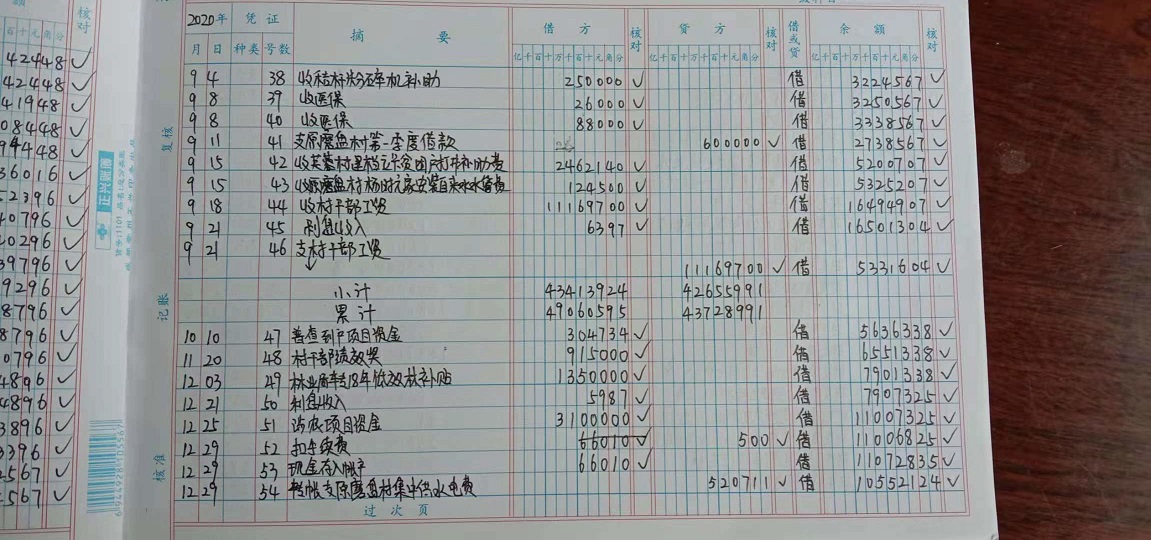 2020年 凭证 摘要 借方 核对 贷方 核对 借或贷 余额 核对
月 日 种类 号数 亿千百十万千百十元角分 亿千百十万千百十元角分 亿千百十万千百十元角分
9 4 38 收秸秆粉碎机补助 250000 √ 借 3224567 √
9 8 39 收医保 26000 √ 借 3250567 √
9 8 40 收医保 88000 √ 借 3338567 √
9 11 41 支原磨盘村第一季度借款 600000 √ 借 2738567 √
9 15 42 收芙蓉村建档立卡贫困户村补助费 2462140 √ 借 5200707 √
9 15 43 收原磨盘村杨时元家安装自来水水管费 124500 √ 借 5325207 √
9 18 44 收村干部工资 11169700 √ 借 16494907 √
9 21 45 利息收入 6397 √ 借 16501304 √
9 21 46 支村干部工资
11169700 √ 借 5331604 √
小计 43413924 42655991
累计 49060595 43728991
10 10 47 普查到户项目资金 304734 √ 借 5636338 √
11 20 48 村干部绩效奖 915000 √ 借 6551338 √
12 03 49 林业局转18年低效林补贴 1350000 √ 借 7901338 √
12 21 50 利息收入 5987 √ 借 7907325 √
12 25 51 涉农项目资金 3100000 √ 借 11007325 √
12 29 52 扣手续费 66010 √ 500 √ 借 11006825 √
12 29 53 现金存入帐户 66010 √ 借 11072835 √
12 29 54 转帐支原磨盘村集中供水电费 520711 √ 借 10552124 √
过次页
复核
记账
核准
正兴账簿
42448 √
42448 √
41948 √
08448 √
94448 √
36016 √
52396 √
40796 √
40296 √
39796 √
9296 √
8796 √
8796 √
0796 √
4896 √
4896 √
3896 √
3396 √
2567 √
567 √